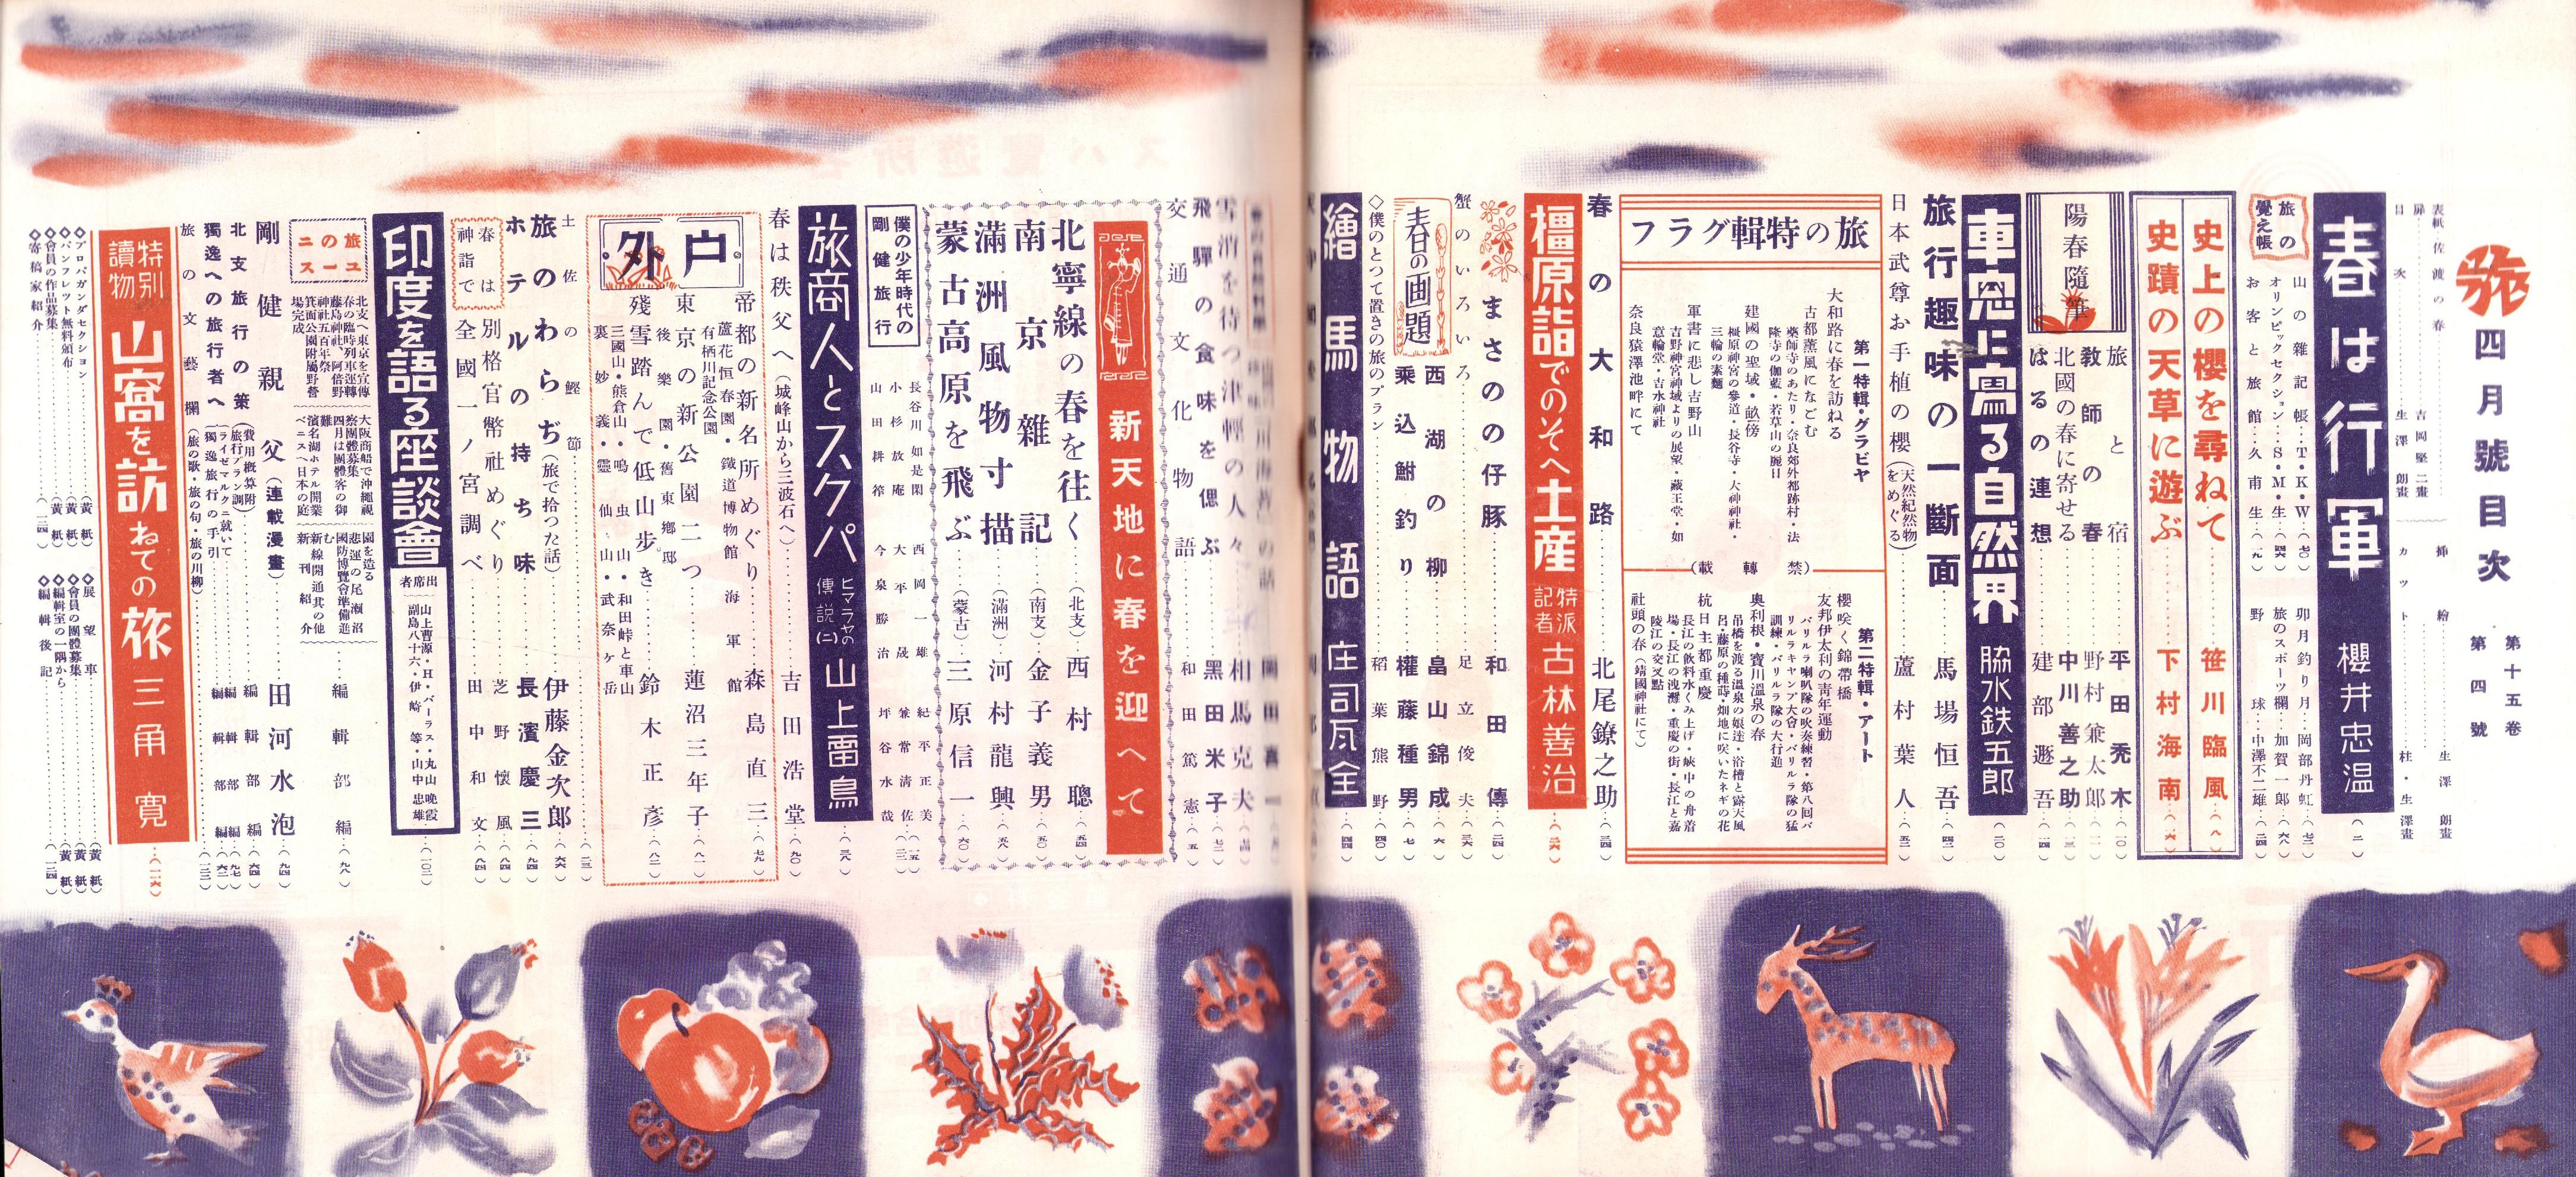 旅
四月號目次
第十五卷
第四號
表紙 佐渡の春
吉岡堅二畫
扉
目次
生澤朗畫
插繪
生澤朗畫
カット
柱・生澤畫
春は行軍
櫻井忠温
(二)
旅の覺え帳
山の雜記帳・T・K・W
オリンピックセクション・S・M・生
お客と旅館・久甫生
卯月釣り月・岡部丹虹
旅のスポーツ欄・加賀一郎
野球・中澤不二雄
史上の櫻を尋ねて
笹川臨風
(八)
史蹟の天草に遊ぶ
下村海南
(六)
陽春隨筆
旅と宿
平田禿木
教師の春
野村兼太郎
北國の春に寄せる
中川善之助
はるの連想
建部遯吾
車窓に寫る自然界
脇水鉄五郎
旅行趣味の一斷面
馬場恒吾
日本武尊お手植の櫻(天然紀然物をめぐる)
蘆村葉人
旅の特輯グラフ
第一特輯・グラビヤ
大和路に春を訪ねる
古都薫風になごむ
藥師寺のあたり・奈良郊外都跡村・法隆寺の伽藍・若草山の麗日
建國の聖域・畝傍
橿原神宮の參道・長谷寺・大神神社・三輪の素麵
軍書に悲し吉野山
吉野神宮神域よりの展望・藏王堂・如意輪堂・吉水神社
奈良猿澤池畔にて
(禁轉載)
第二特輯・アート
櫻咲く錦帶橋
友邦伊太利の青年運動
バリルラ喇叭隊の吹奏練習・第八回バリルラキャンプ大會・バリルラ隊の猛訓練・バリルラ隊の大行進
奧利根・寶川溫泉の春
吊橋を渡る溫泉の娘達・浴槽と露天風呂・藤原の種蒔・畑地に咲いたネギの花
杭日主都重慶
長江の飲料水くみ上げ・峽中の舟着場・長江の洩灘・重慶の街・長江と嘉陵江の交叉點
社頭の春(靖國神社にて)
春の大和路
北尾鐐之助
橿原詣でのそへ土産
特派記者
古林善治
まさのの仔豚
和田傳
蟹のいろいろ
足立俊夫
春の画題
西湖の柳
畠山錦成
乘込鮒釣り
權藤種男
◇僕のとつて置きの旅のプラン
稻葉熊野
繪馬物語
庄司瓦全
雪消を待つ津輕の人々
相馬克夫
飛驒の食味を偲ぶ
黑田米子
交通文化物語
和田篤憲
新天地に春を迎へて
北寧線の春を往く
(北支)
西村聰
南京雜記
(南支)
金子義男
滿洲風物寸描
(滿洲)
河村龍興
蒙古高原を飛ぶ
(蒙古)
三原信一
僕の少年時代の剛健旅行
長谷川如是閑
小杉放庵
山田耕筰
西岡一雄
大平晟
今泉勝治
紀平正美
兼常清佐
坪谷水哉
旅商人とスクパ
ヒマラヤの傳説(二)
山上雷鳥
春は秩父へ(城峰山から三波石へ)
吉田浩堂
戸外
帝都の新名所めぐり
森島直三
蘆花恒春園・鐵道博物館
有栖川記念公園
海軍館
後樂園・舊東鄉邸
東京の新公園二つ
蓮沼三年子
殘雪踏んで低山歩き
鈴木正彥
三國山・熊倉山・鳴虫山・和田峠と車山
裏妙義・靈仙山・武奈ヶ岳
土佐の鰹節
(二三)
旅のわらぢ(旅で拾つた話)
伊藤金次郎
ホテルの持ち味
長濱慶三
春は神詣で
別格官幣社めぐり
芝野懷風
全國一ノ宮調べ
田中和文
印度を語る座談會
出席者
山上曹源・H・バーラス・丸山晩霞
副島八十六・伊崎等・山中忠雄
(一〇二)
旅のユニース
北支へ東京を宣傳
春の臨時列車運轉
藤島神社・阿倍野神社・百年祭
箕面公園附屬野營場完成
大阪商船で沖繩視察團體募集
四月は團體客の御難
濱名湖ホテル開業
ベニスへ日本の庭園を造る
悲運の尾瀬沼
國防博覽會準備進む
新線開通其の他
新刊紹介
編輯部編
(九八)
剛健親父(連載漫畫)
田河水泡
(九四)
北支旅行の策(費用概算附)(旅行プラン調)
編輯部編
獨逸への旅行者へ(ライゼマルクに就いて)(獨逸旅行の手引)
編輯部編
旅の文藝欄(旅の歌・旅の句・旅の川柳)
特別讀物
山窩を訪ねての旅
三角寛
(一一六)
◇プロパガンダセクション
(黄紙)
◇パンフレツト無料頒布
(黄紙)
◇會員の作品募集
(黄紙)
◇寄稿家紹介
◇展望車
(黄紙)
◇會員の團體募集
(黄紙)
◇編輯室の一隅から
(黄紙)
◇編輯後記